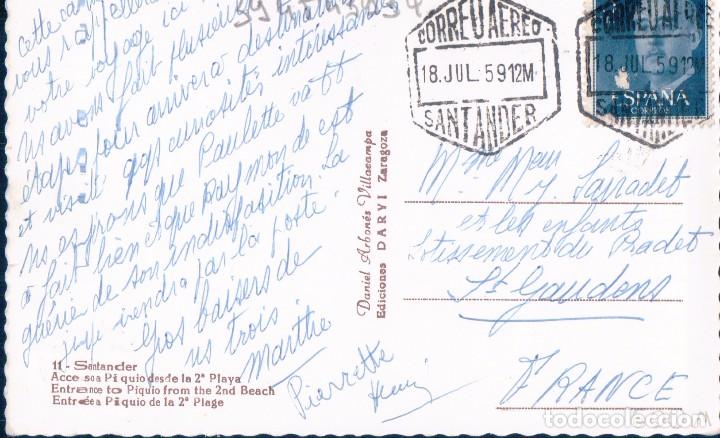 cette
vous rappeler
votre voyage ici
ns avons fait plusieurs
étapes pour arriver à destination
et visité qqs curiosités intéressantes
ns espérons que Paulette va tt
à fait bien et que Raymonde est
guérie de son indisposition. La
viendra par la poste.
Gros baisers de
ns trois.
Marthe
Pierrette
11 - Santander
Acceso a Piquio desde la 2ª Playa
Entrance to Piquio from the 2nd Beach
Entrée a Piquio de la 2ª Plage
Daniel Arbonés Villacampa
Ediciones DARVI Zaragoza
CORREO AEREO
18 JUL. 59 12M
SANTANDER
CORREO AEREO
18 JUL. 59 12M
SANTANDER
ESPAÑA
CORREOS
Mme Mr Y. Sarradet
et les enfants
Lotissement du Pradet
St Gaudens
FRANCE
todocoleccion